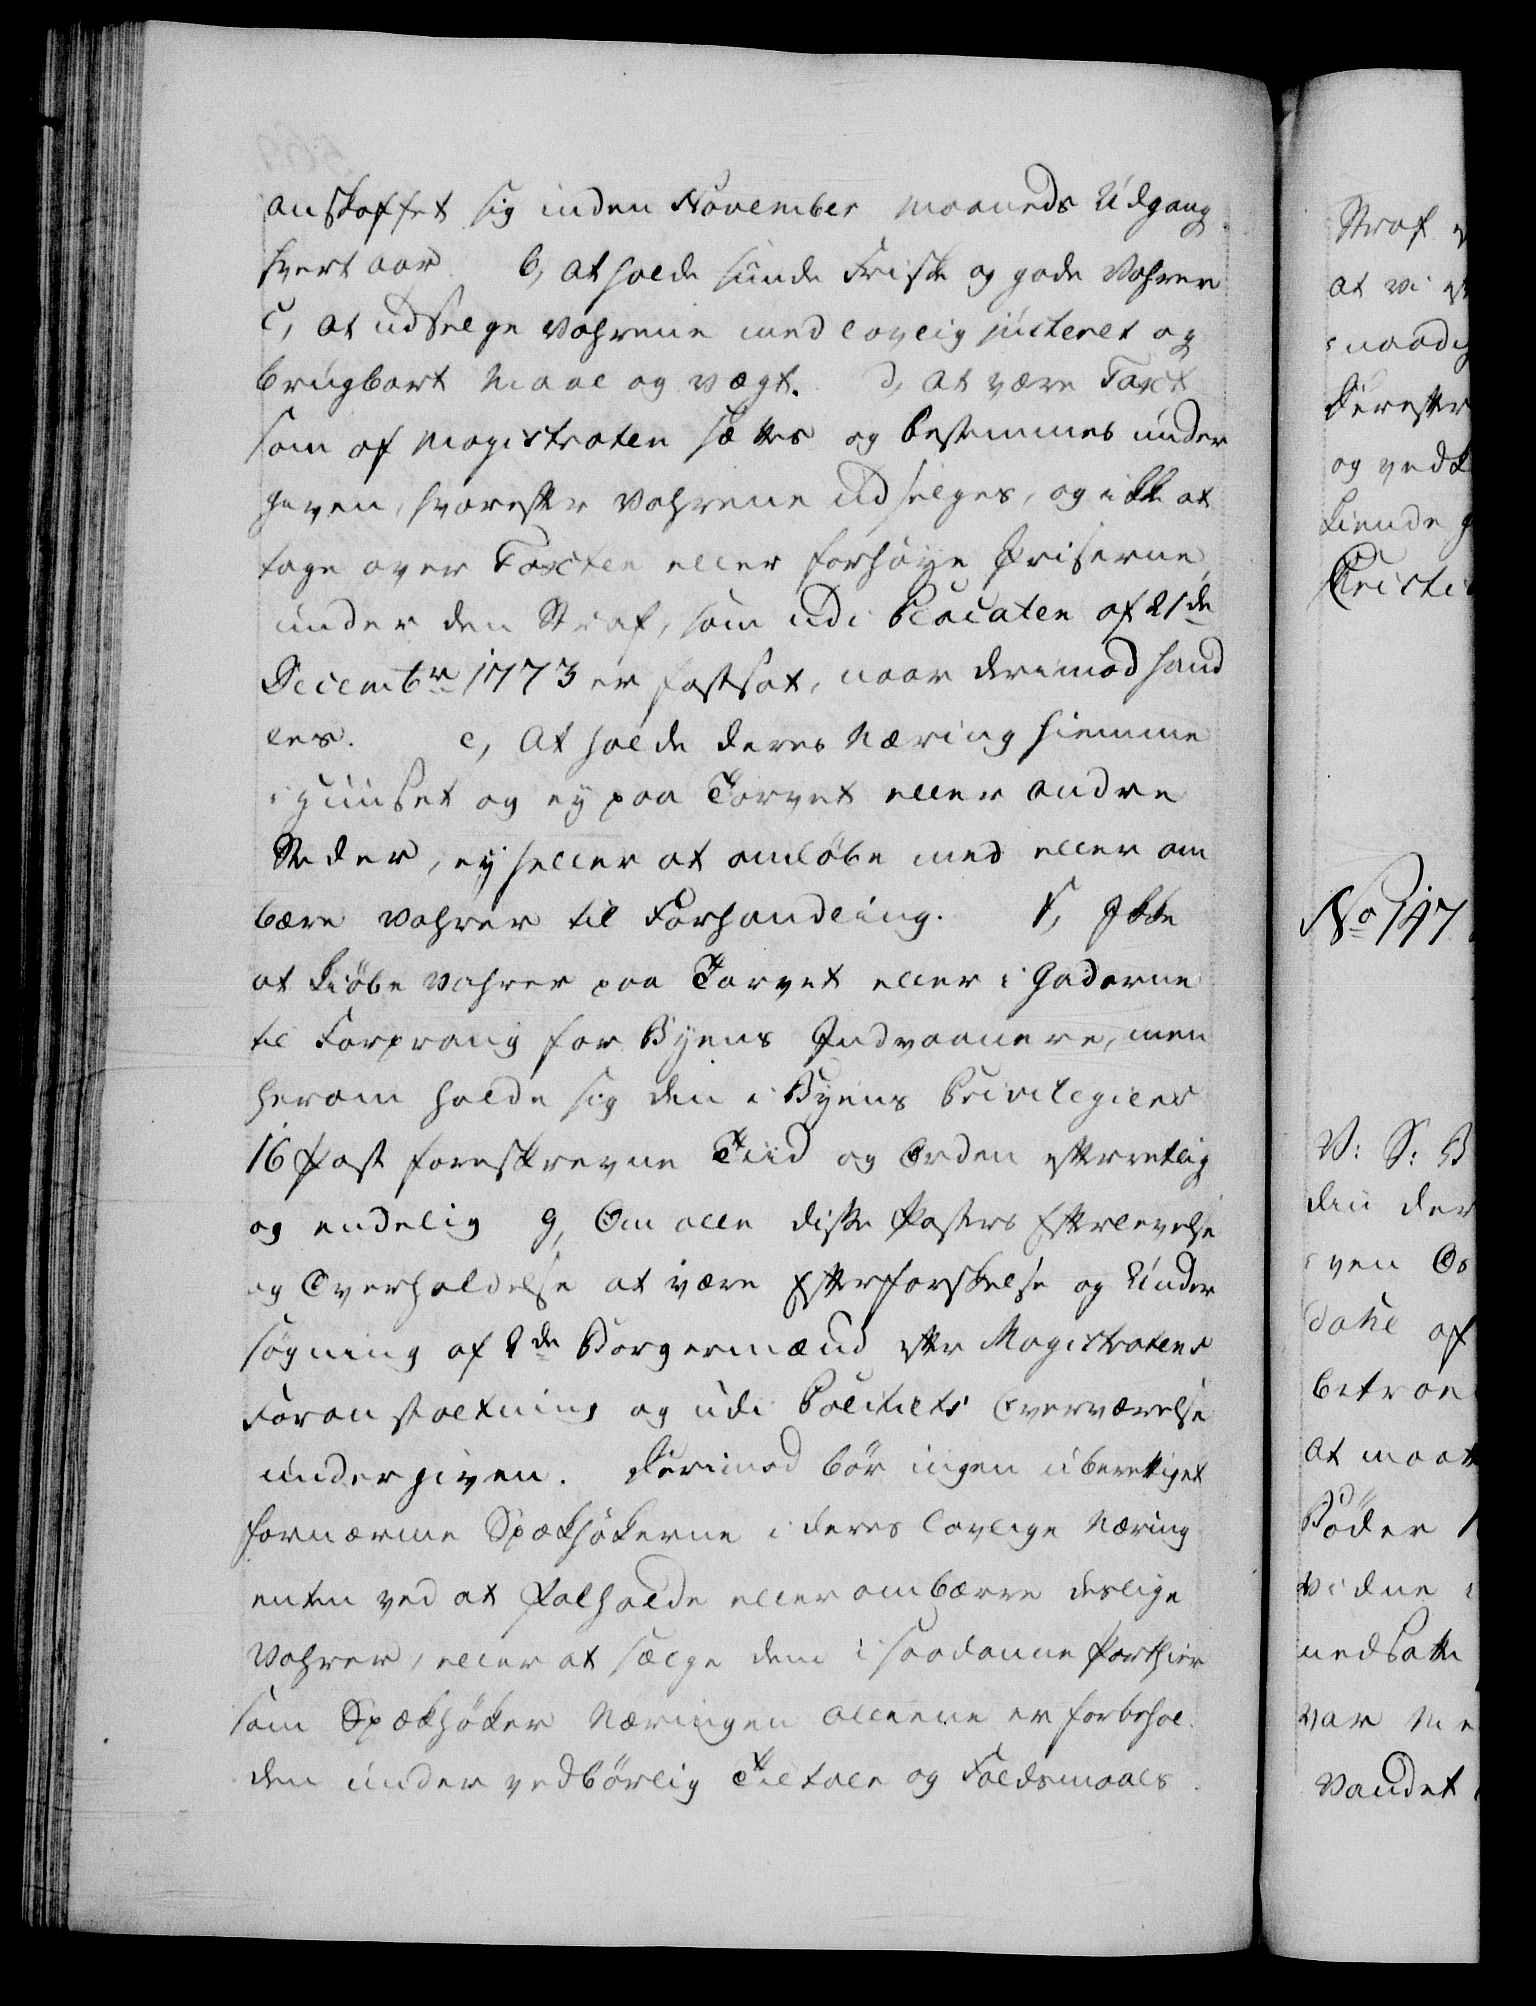 anskaffet sig inden November Maaneds Udgang
hvert aar b, at holde sunde Friske og gode Vahrer
c, at udselge Vahrene med lovlig justeret og
brugbart Maal og vægt. d, at være Taxt
som af Magistraten sættes og bestemmes under
given, hvorefter Vahrene udselges, og ikke at
tage over Taxten eller forhøye Priserne,
under den Straf, som udi Placaten af 21de
Decembr 1773 er fastsat, naar derimod hand
les. e, At holde deres Næring hiemme
i Huuset og ey paa Torvet eller andre
Steder, ey heller at omløbe med eller om
bære Vahrer til Forhandling. f, Ikke
at kiøbe Vahrer paa Torvet eller i Gaderne
til Forprang for Byens Indvaanere, men
herom holde sig den i Byens Privilegiers
16 Post foreskrevne Tiid og Orden efterretlig
og endelig g, Om alle diske Posters Efterlevelse
og Overholdelse at være Efterforskelse og Under
søgning af 2de Borgermænd efter Magistratens
Foranstaltning og udi Politiets Overværelse
undergiven. Derimod bør ingen uberettiget
fornærme Spækhøkerne i deres lovlige Næring
enten ved at falholde eller ombærre deslige
Vahrer, eller at sælge dem i saadanne Parthier
som Spækhøker Næringen alleene er forbehol
den under vedbørlig Tiltale og Faldsmaals
Straf
at vi
naadig
Derefter
og vedk
kiende
Christi
No 147
V: S: B
den der
ven Os
dahl af
betroe
at maatte
Bøder
vidne
nedsatte
var Me
Vandet